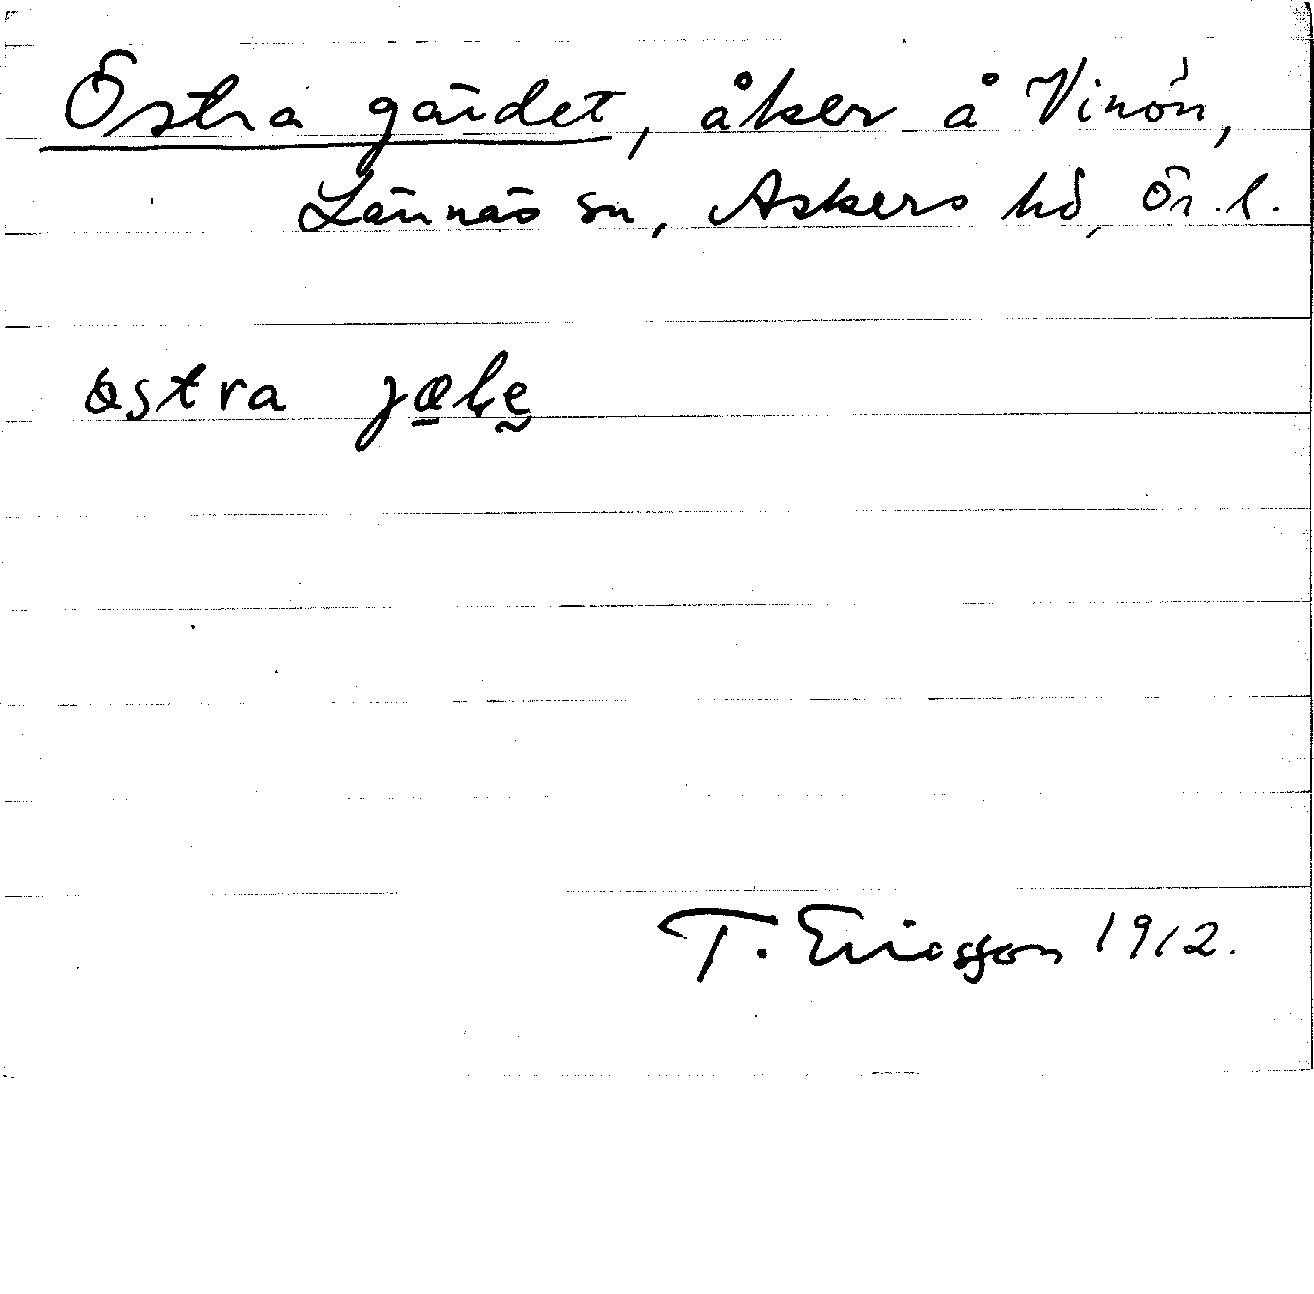 Östra gärdet, åker å Vinön,
Lännäs sn, Askers hd, Ör. l.
östra
T. Ericsson 1912.